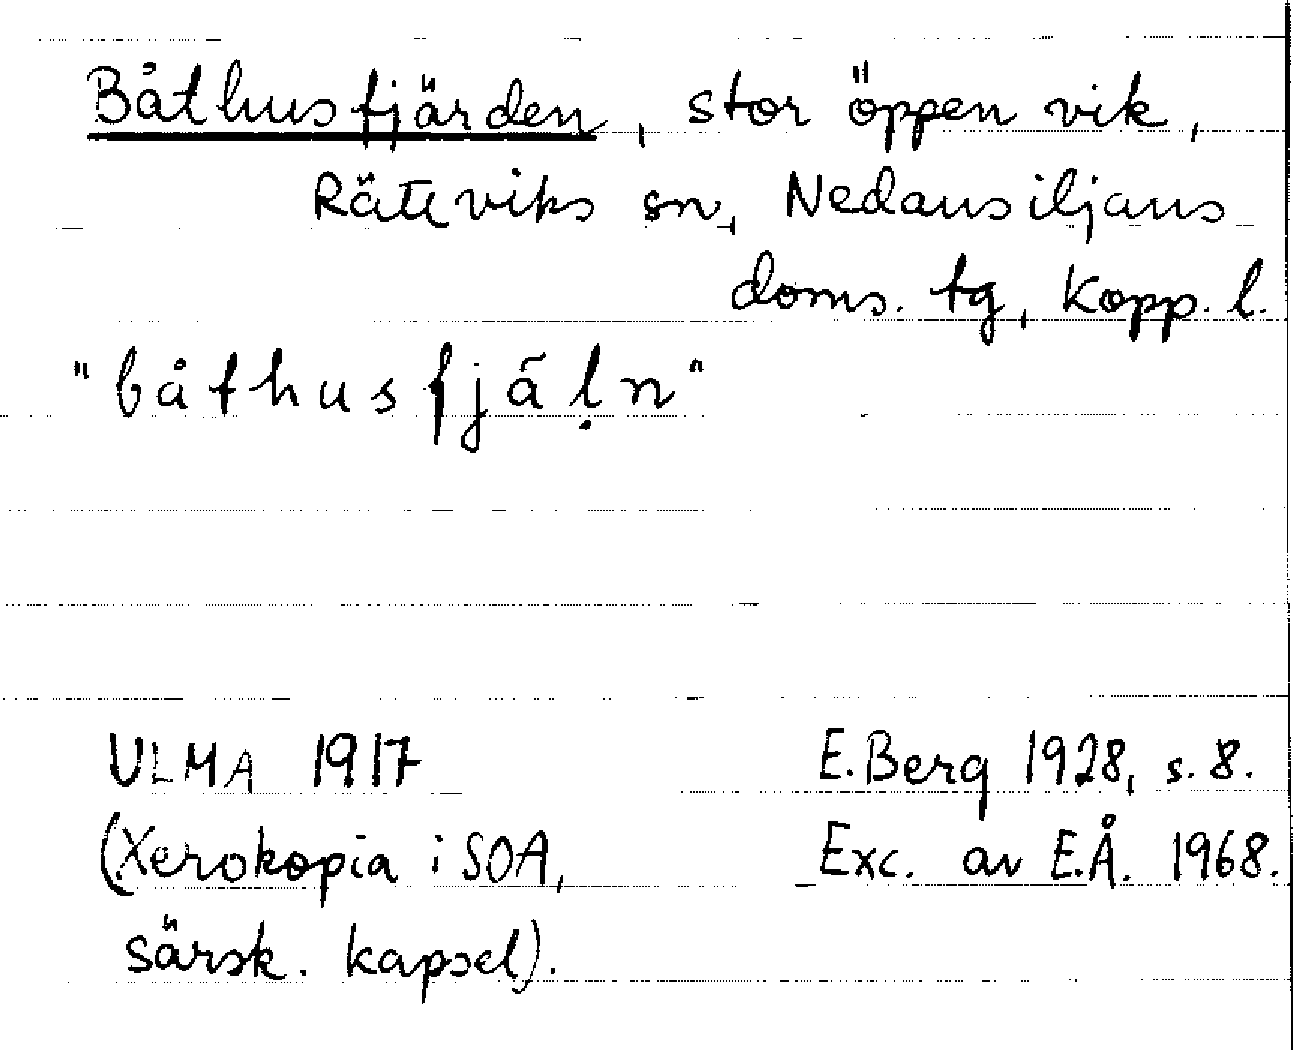 Båthusfjärden, stor öppen vik,
Rättviks sn, Nedansiljans
doms. tg, Kopp. l.
"båthusfjãḷn"
ULMA 1917
E. Berg 1928, s. 8.
(Xerokopia i SOA,
Exc. av E.Å. 1968.
särsk. kapsel).